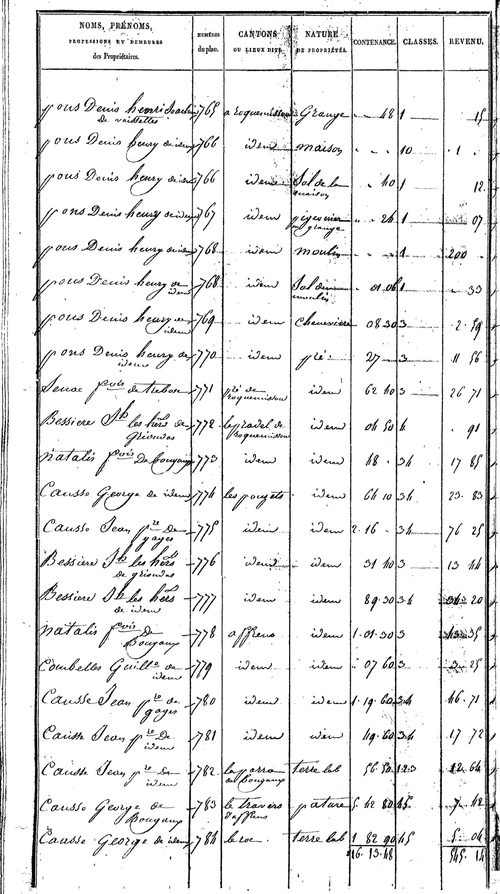 NOMS, PRÉNOMS, PROFESSIONS ET DEMEURES des Propriétaires. NUMÉROS du plan. CANTONS OU LIEUX DITS. NATURE DE PROPRIÉTÉS. CONTENANCE. CLASSES. REVENU.
pous Denis henri 765 a roquemissou Grange 48 1 15
de vaissettes
pous Denis henry de idem 766 idem maison 10 1
pous Denis henry de idem 766 idem Sol de la 40 1 12
maison
pous Denis henry de idem 767 idem pigeonier 24 1 07
et grange
pous Denis henry de idem 768 idem moulin 1 200
pous Denis henry de 768 idem Sol du 01 06 1 33
idem moulin
pous Denis henry de 769 idem cheneviere 08 30 3 2 59
idem
pous Denis henry de 770 idem pré 27 3 11 56
idem
Senac fçois de trebosc 771 pré de idem 62 40 3 26 71
roquemissou
Bessiere Jh les hers de 772 le pradel de idem 04 50 4 91
Grioudas roquemissou
Natalis fçois de Bougaux 773 idem idem 48 34 17 85
Causse George de idem 774 les pougets idem 64 10 34 23 83
Causse Jean pre de 775 idem idem 2 16 34 76 25
gages
Bessiere Jh les hers 776 idem idem 31 40 3 13 44
de grioudas
Bessiere Jh les hers 777 idem idem 89 30 34 20
de idem
Natalis fçois de 778 affreus idem 1 01 30 3 35
Bougaux
Combelles Guille de 779 idem idem 07 60 3 3 25
idem
Causse Jean pre de 780 idem idem 1 19 60 34 46 71
gages
Causse Jean pre de 781 idem idem 49 60 34 17 72
idem
Causse Jean pre de 782 la parra terre lab 56 50 123 12 64
idem de Bougaux
Causse George de 783 le travers pature 5 42 80 45 7 42
Bougaux d'affreus
Causse George de idem 784 le roc terre lab 1 82 90 45 5 04
16 13 48 545 14